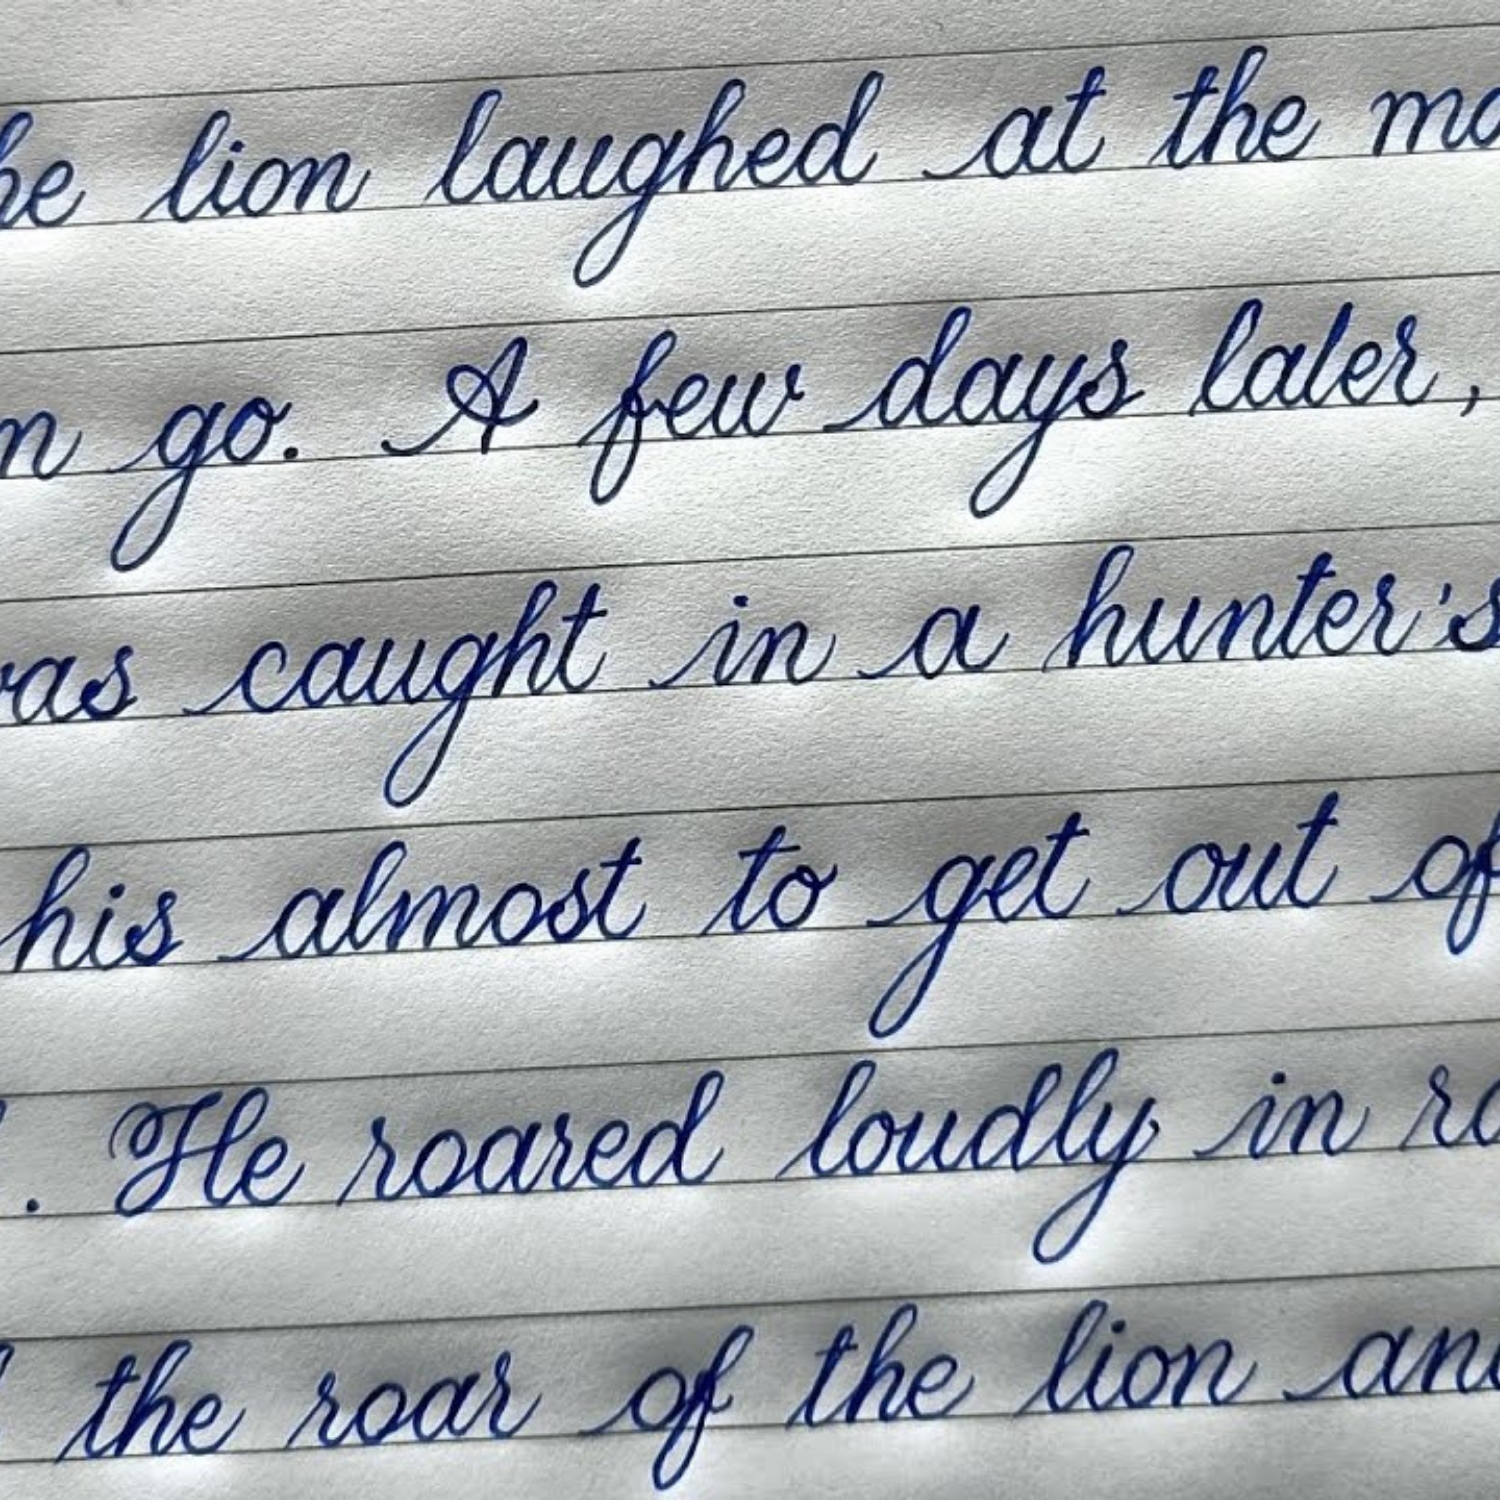 he lion laughed at the mo
n go. A few days later,
was caught in a hunter's
his almost to get out of
. He roared loudly in ro
the roar of the lion and